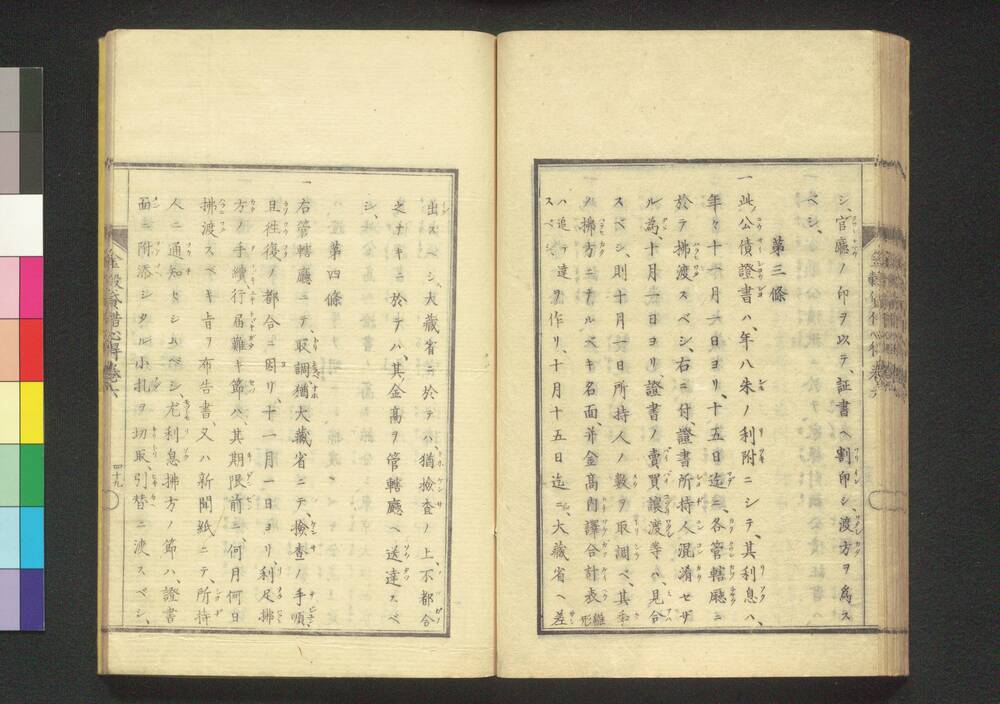 シ、官廳ノ印ヲ以テ、証書ヘ割印シ、渡方ヲ爲ス
ベシ、
第三條
一 此公債證書ハ、年八朱ノ利附ニシテ、其利息ハ、
年々十一月一日ヨリ、十五日迄ニ、各管轄廳ニ
於テ拂渡スベシ、右ニ付、證書所持人混淆セザ
ル爲、十月一日ヨリ、證書ノ賣買讓渡等ハ、見合
スベシ、則十月一日所持人ノ數ヲ取調ベ、其季
ノ拂方ニナルベキ名面、并金高内譯合計表雛形
ハ追テ達ヲ作リ、十月十五日迄ニ、大藏省ヘ差
スベシ
出スベシ、大藏省ニ於テハ、猶撿査ノ上、不都合
之ナキニ於テハ、其金高ヲ管轄廳ヘ送達スベ
シ、
第四條
一 右管轄廳ニテ、取調猶大藏省ニテ、撿査ノ手順、
且徃復ノ都合ニ因リ、十一月一日ヨリ、利足拂
方ノ手續、行届難キ節ハ、其期限前ニ、何月何日
拂渡スベキ旨ヲ布告書、又ハ新聞紙ニテ、所持
人ニ通知セシムベシ、尤利息拂方ノ節ハ、證書
面ニ附添シタル小札ヲ切取、引替ニ渡スベシ、
四十九